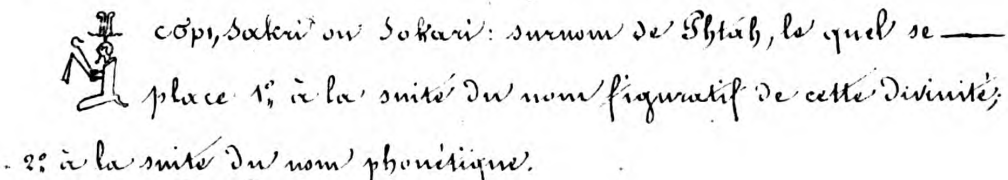 ⲥⲟⲕⲣⲓ, Sakri ou Sokari: surnom de Phtah, le quel se —
place 1º, à la suite du nom figuratif de cette divinité;
2º à la suite du nom phonétique.